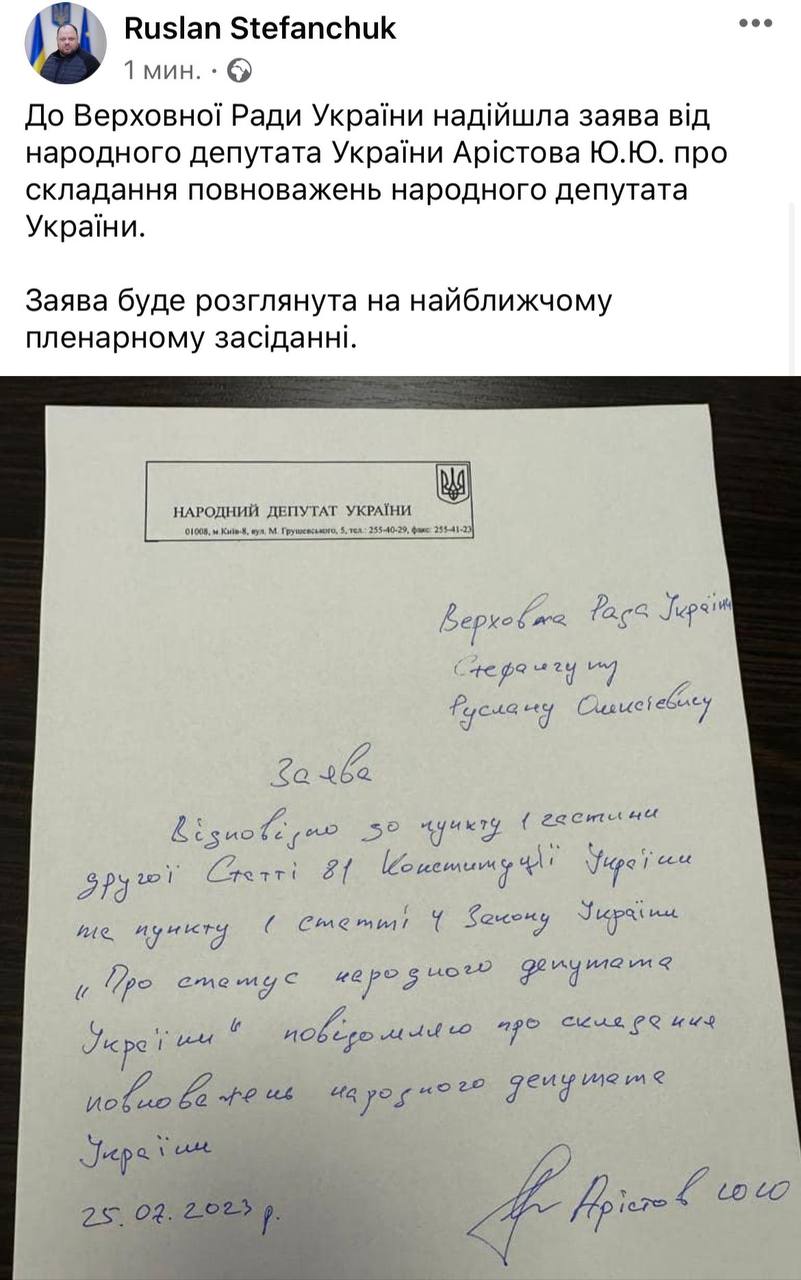 Ruslan Stefanchuk
1 мин.
До Верховної Ради України надійшла заява від
народного депутата України Арістова Ю.Ю. про
складання повноважень народного депутата
України.
Заява буде розглянута на найближчому
пленарному засіданні.
НАРОДНИЙ ДЕПУТАТ УКРАЇНИ
01008, м.Київ-8, вул. М. Грушевського, 5, тел.: 255-40-29, факс: 255-41-23
Верховна Рада України
Стефанчуку
Руслану Олексієвичу
Заява
Відповідно до пункту 1 частини
другої Статті 81 Конституції України
та пункту 1 статті 4 Закону України
"Про статус народного депутата
України" повідомляю про складання
повноважень народного депутата
України
25.07.2023 р.
Арістов Ю Ю